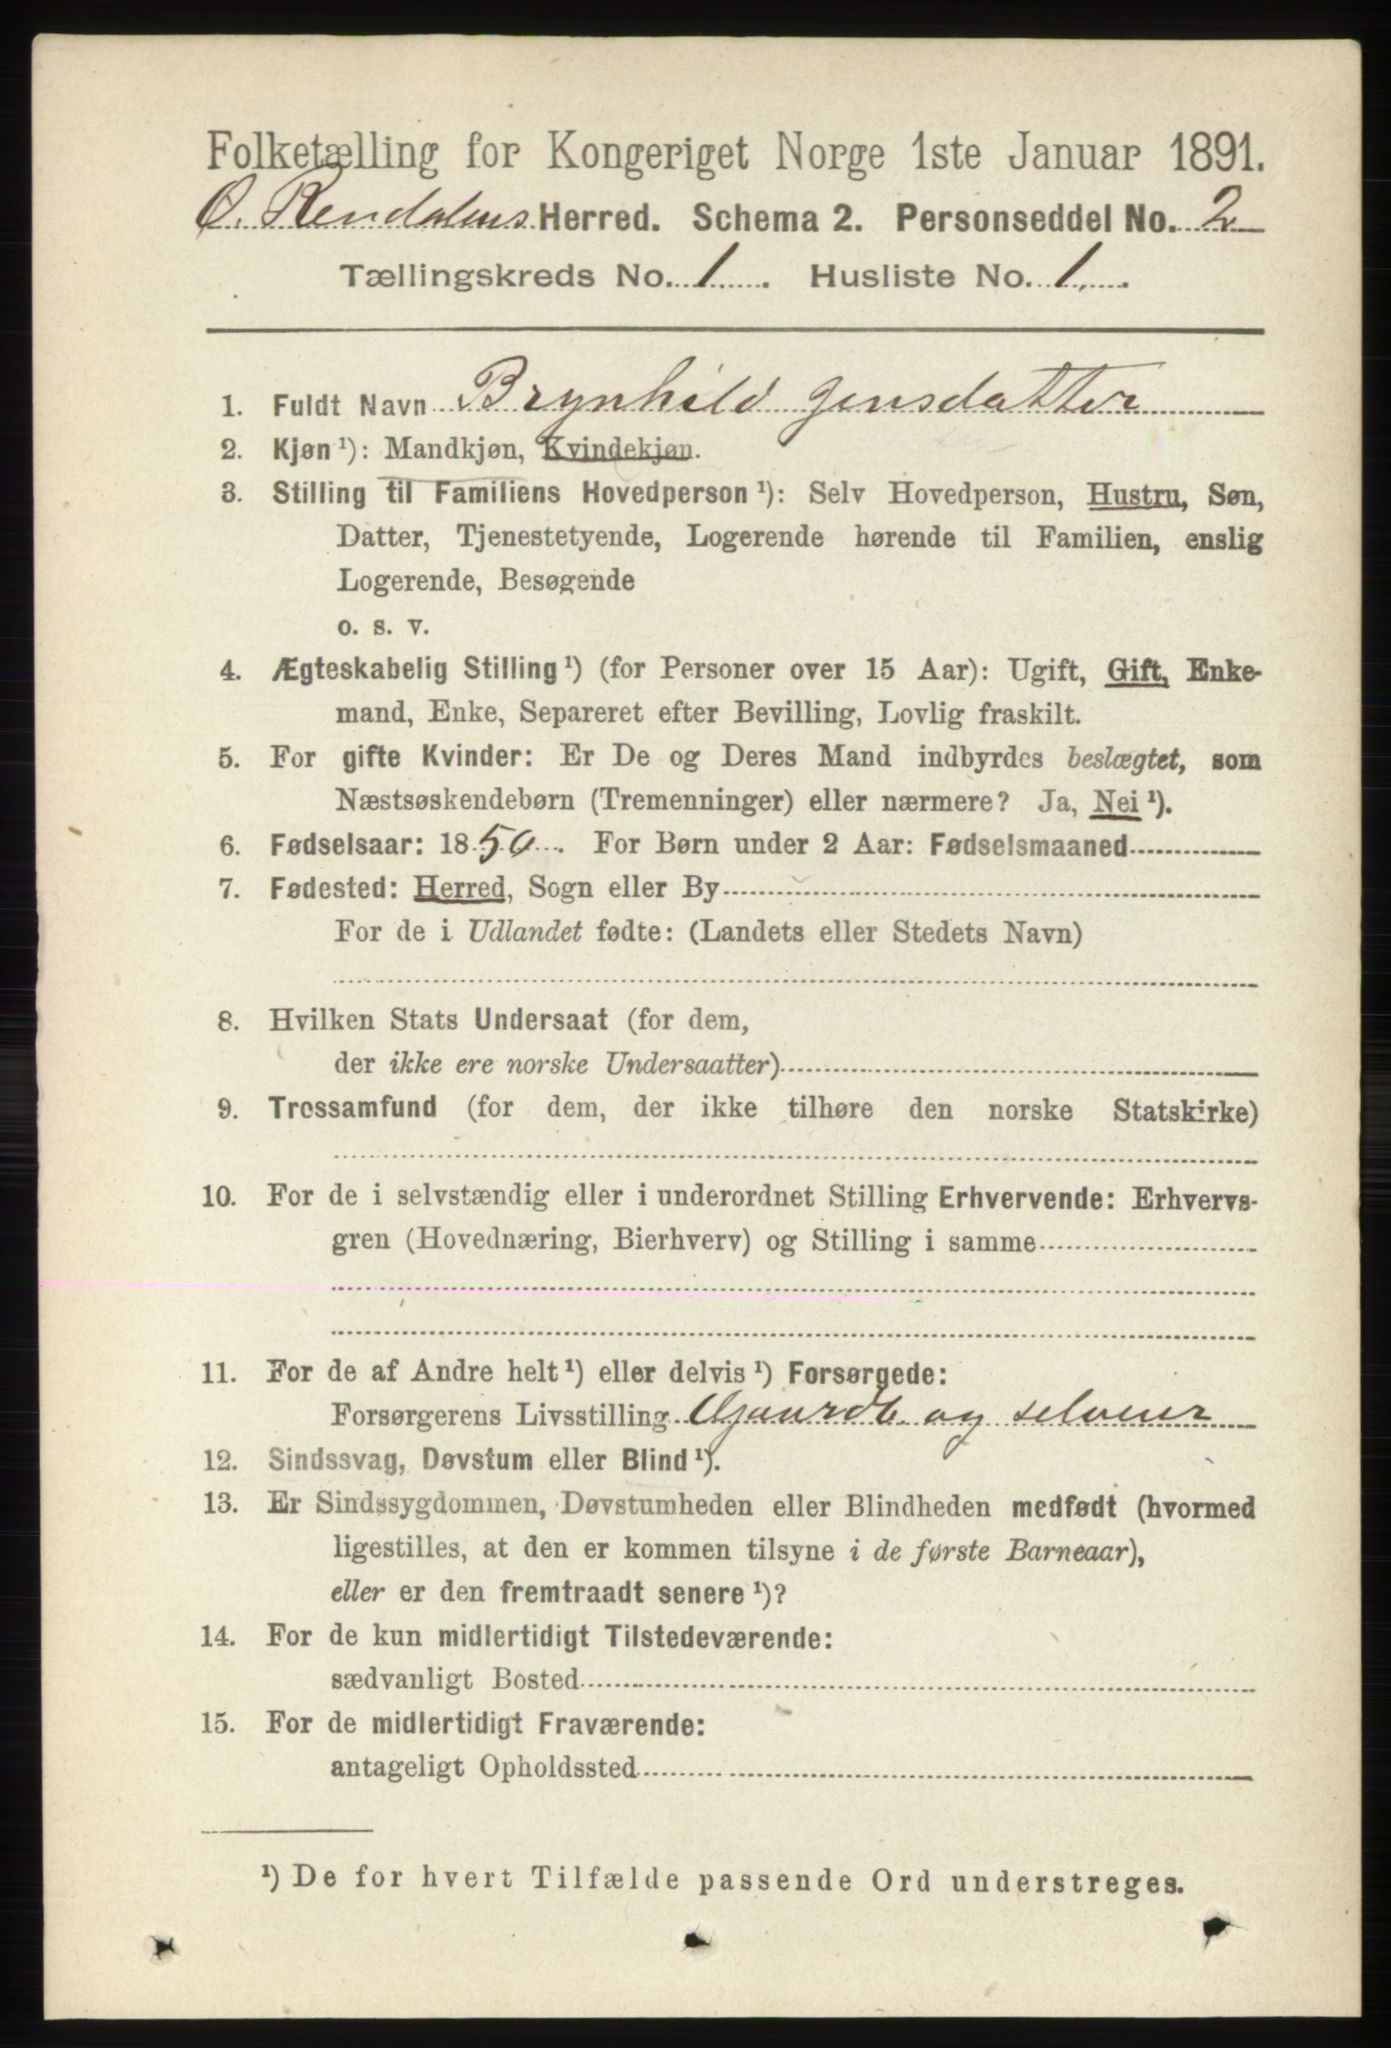 Folketælling for Kongeriget Norge 1ste Januar 1891.
Ø. Rendalens Herred. Schema 2. Personseddel No. 2
Tællingskreds No. 1. Husliste No. 1.
1. Fuldt Navn Brynhild Jensdatter
2. Kjøn ¹): Mandkjøn, Kvindekjøn.
3. Stilling til Familiens Hovedperson ¹): Selv Hovedperson, Hustru, Søn,
Datter, Tjenestetyende, Logerende hørende til Familien, enslig
Logerende, Besøgende
o. s. v.
4. Ægteskabelig Stilling ¹) (for Personer over 15 Aar): Ugift, Gift, Enke-
mand, Enke, Separeret efter Bevilling, Lovlig fraskilt.
5. For gifte Kvinder: Er De og Deres Mand indbyrdes beslægtet, som
Næstsøskendebørn (Tremenninger) eller nærmere? Ja, Nei ¹).
6. Fødselsaar: 1850. For Børn under 2 Aar: Fødselsmaaned
7. Fødested: Herred, Sogn eller By
For de i Udlandet fødte: (Landets eller Stedets Navn)
8. Hvilken Stats Undersaat (for dem,
der ikke ere norske Undersaatter)
9. Trossamfund (for dem, der ikke tilhøre den norske Statskirke)
10. For de i selvstændig eller i underordnet Stilling Erhvervende: Erhvervs-
gren (Hovednæring, Bierhverv) og Stilling i samme
11. For de af Andre helt ¹) eller delvis ¹) Forsørgede:
Forsørgerens Livsstilling Gaardb. og selveier
12. Sindssvag, Døvstum eller Blind ¹).
13. Er Sindssygdommen, Døvstumheden eller Blindheden medfødt (hvormed
ligestilles, at den er kommen tilsyne i de første Barneaar),
eller er den fremtraadt senere ¹)?
14. For de kun midlertidigt Tilstedeværende:
sædvanligt Bosted
15. For de midlertidigt Fraværende:
antageligt Opholdssted
¹) De for hvert Tilfælde passende Ord understreges.